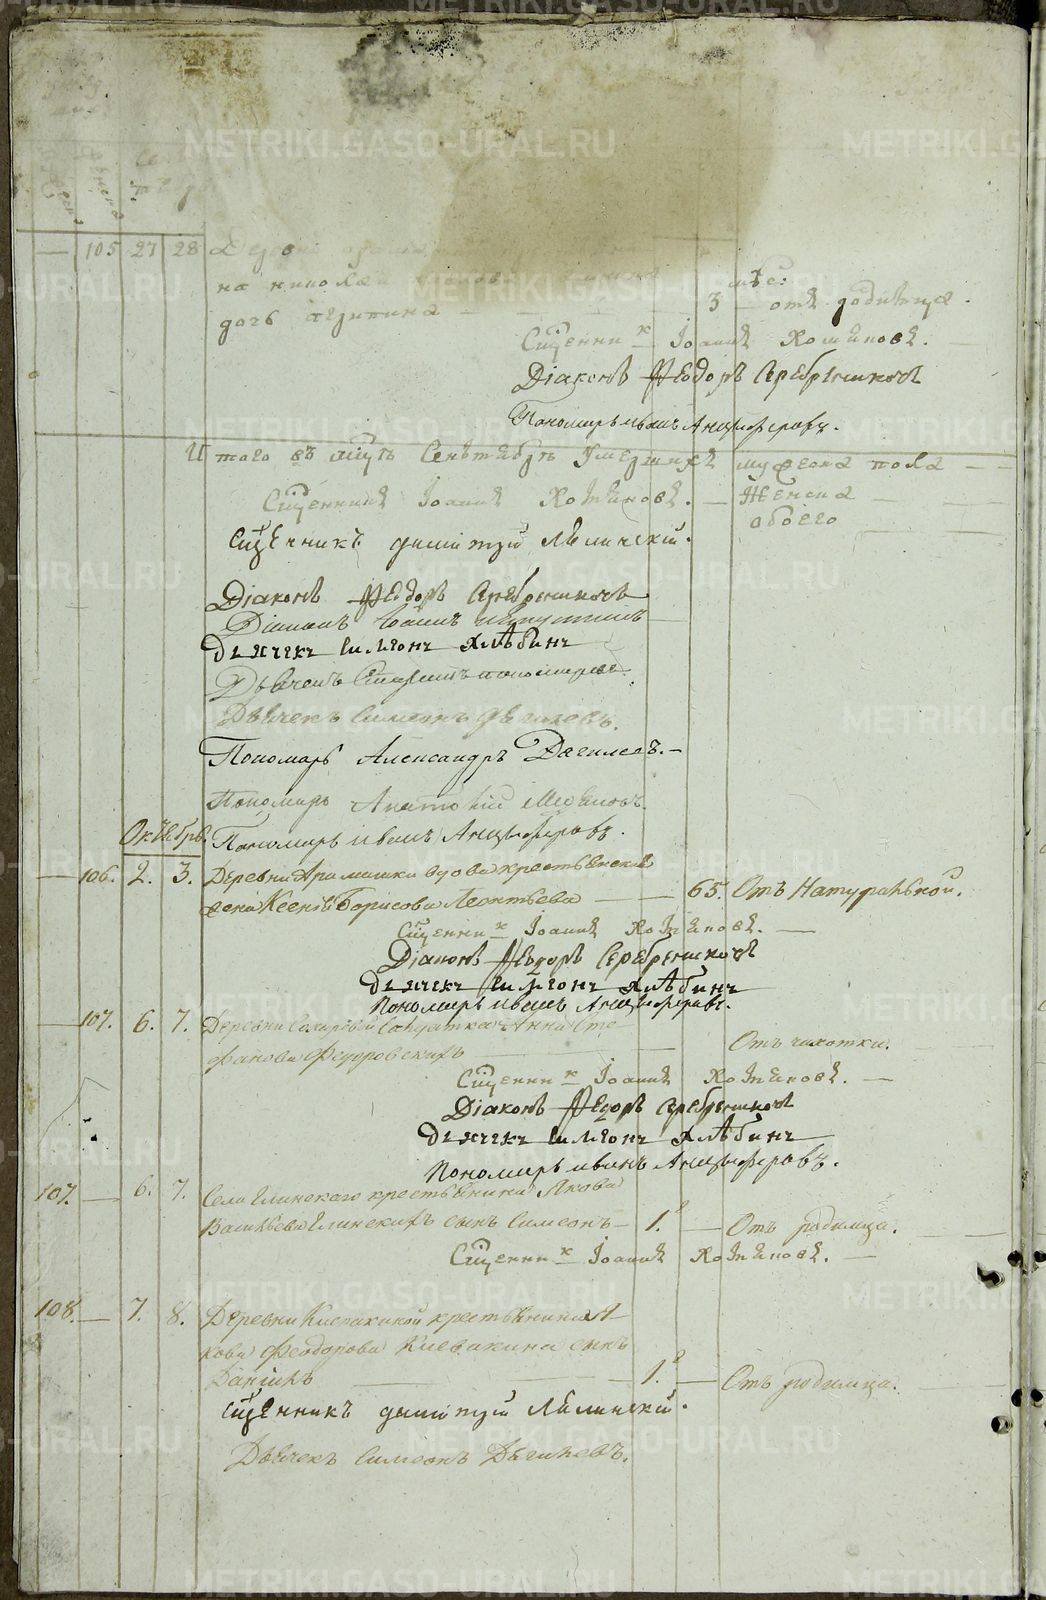 METRIKI.GASO-URAL.RU
— 105 27 28
на николая
мѣс:
дочь 3 — отъ родимца.
Сщенникъ Іоаннъ Хотяновъ.
Діаконъ Феодоръ Серебрениковъ
Пономарь Иванъ Анцыферовъ.
Итого въ мцѣ Сентябрѣ Умершихъ мужеска пола —
Сщенникъ Іоаннъ Хотяновъ. — Женска —
обоего
Сщенникъ димитрий
Діаконъ Феодоръ Серебрениковъ
Діаконъ Іоаннъ
Дьячекъ Симеонъ Хлѣбинъ
Дьячекъ Пономаревъ.
Дьячекъ Симеонъ Дягилевъ.
Пономарь Александръ Дягилевъ. —
Пономарь
Октябрь. Пономарь Иванъ Анцыферовъ.
— 106. 2. 3. Деревни Арамашки вдова крестьянская
жена Ксенія Борисова Леонтьева — 65. Отъ Натуральной.
Сщенникъ Іоаннъ Хотяновъ. —
Діаконъ Феодоръ Серебрениковъ
Дьячекъ Симеонъ Хлѣбинъ
Пономарь Иванъ Анцыферовъ.
— 107. 6. 7. Деревни Солдатка Анна Сте-
фанова Федоровскихъ — Отъ чахотки.
Сщенникъ Іоаннъ Хотяновъ. —
Діаконъ Феодоръ Серебрениковъ
Дьячекъ Симеонъ Хлѣбинъ
Пономарь Иванъ Анцыферовъ.
107. — 6. 7. Села Глинскаго крестьянина Якова
Васильева Глинскихъ сынъ Симеонъ — 1. — Отъ родимца.
Сщенникъ Іоаннъ Хотяновъ. —
108. — 7. 8. Деревни крестьянина Я-
кова Феодорова сынъ
Даніилъ — 1. — Отъ родимца.
Сщенникъ димитрий
Дьячекъ Симеонъ Дягилевъ.